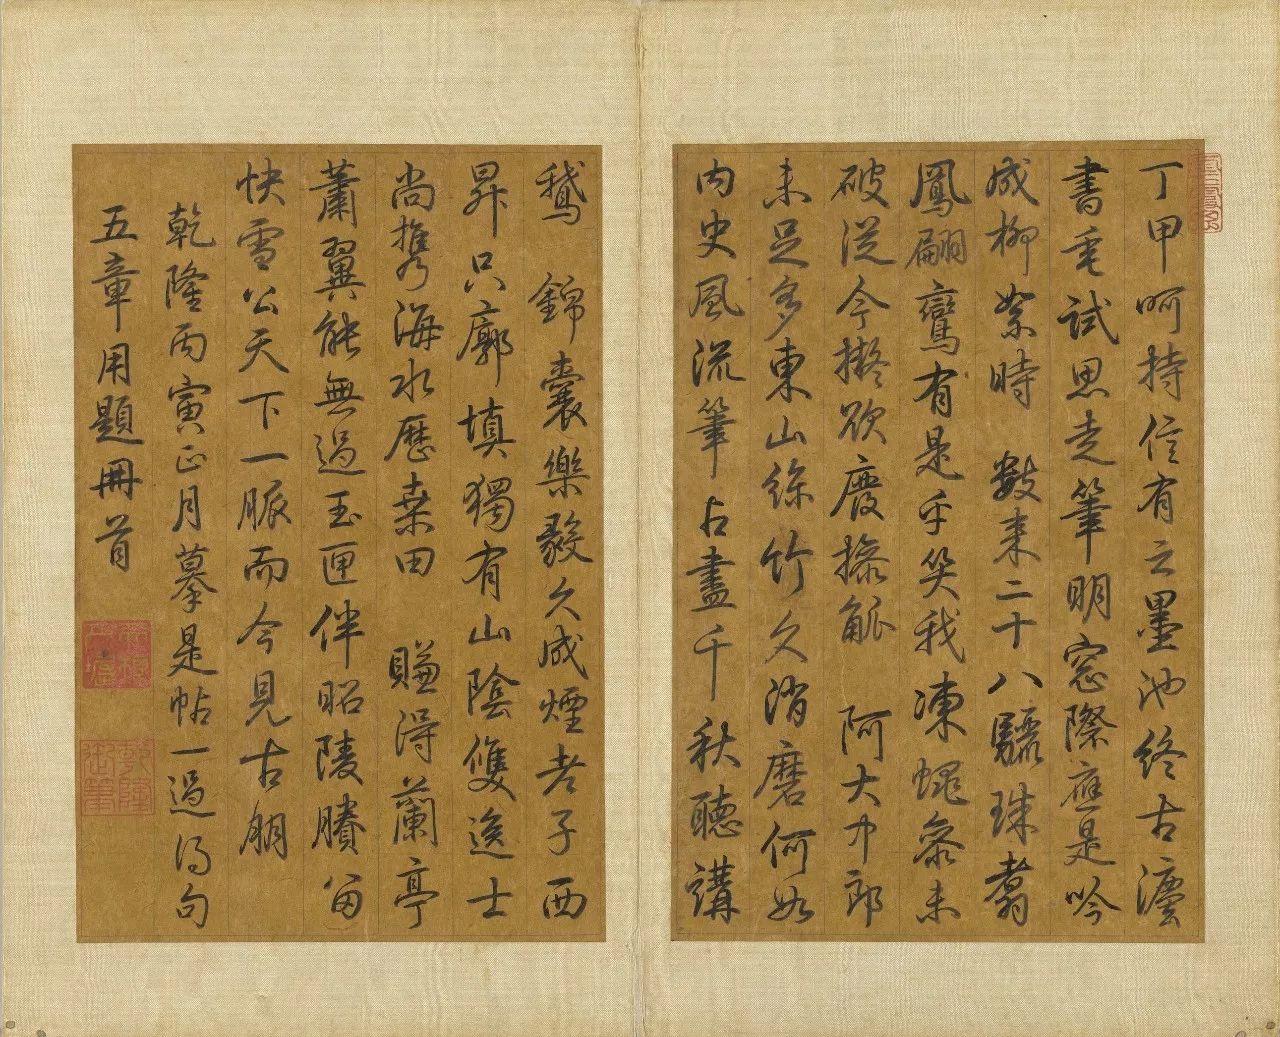 丁甲呵持信有之墨池終古澐
書毫試思走筆明窓際應是吟
成柳絮時 數来二十八驪珠翥
鳳翩鸞有是乎笑我凍蠅參未
破從今擬欲廢操觚 阿大中郎
未足多東山絲竹久消磨何如
内史風流筆占盡千秋聽講
鵞 錦囊樂毅久成煙老子西
昇只廓填獨有山陰雙逸士
尚携海水歷桑田 賺得蘭亭
蕭翼能無過玉匣伴昭陵賸留
快雪公天下一脈而今見古朋
乾隆丙寅正月摹是帖一過得句
五章用題冊首
乾隆
御筆